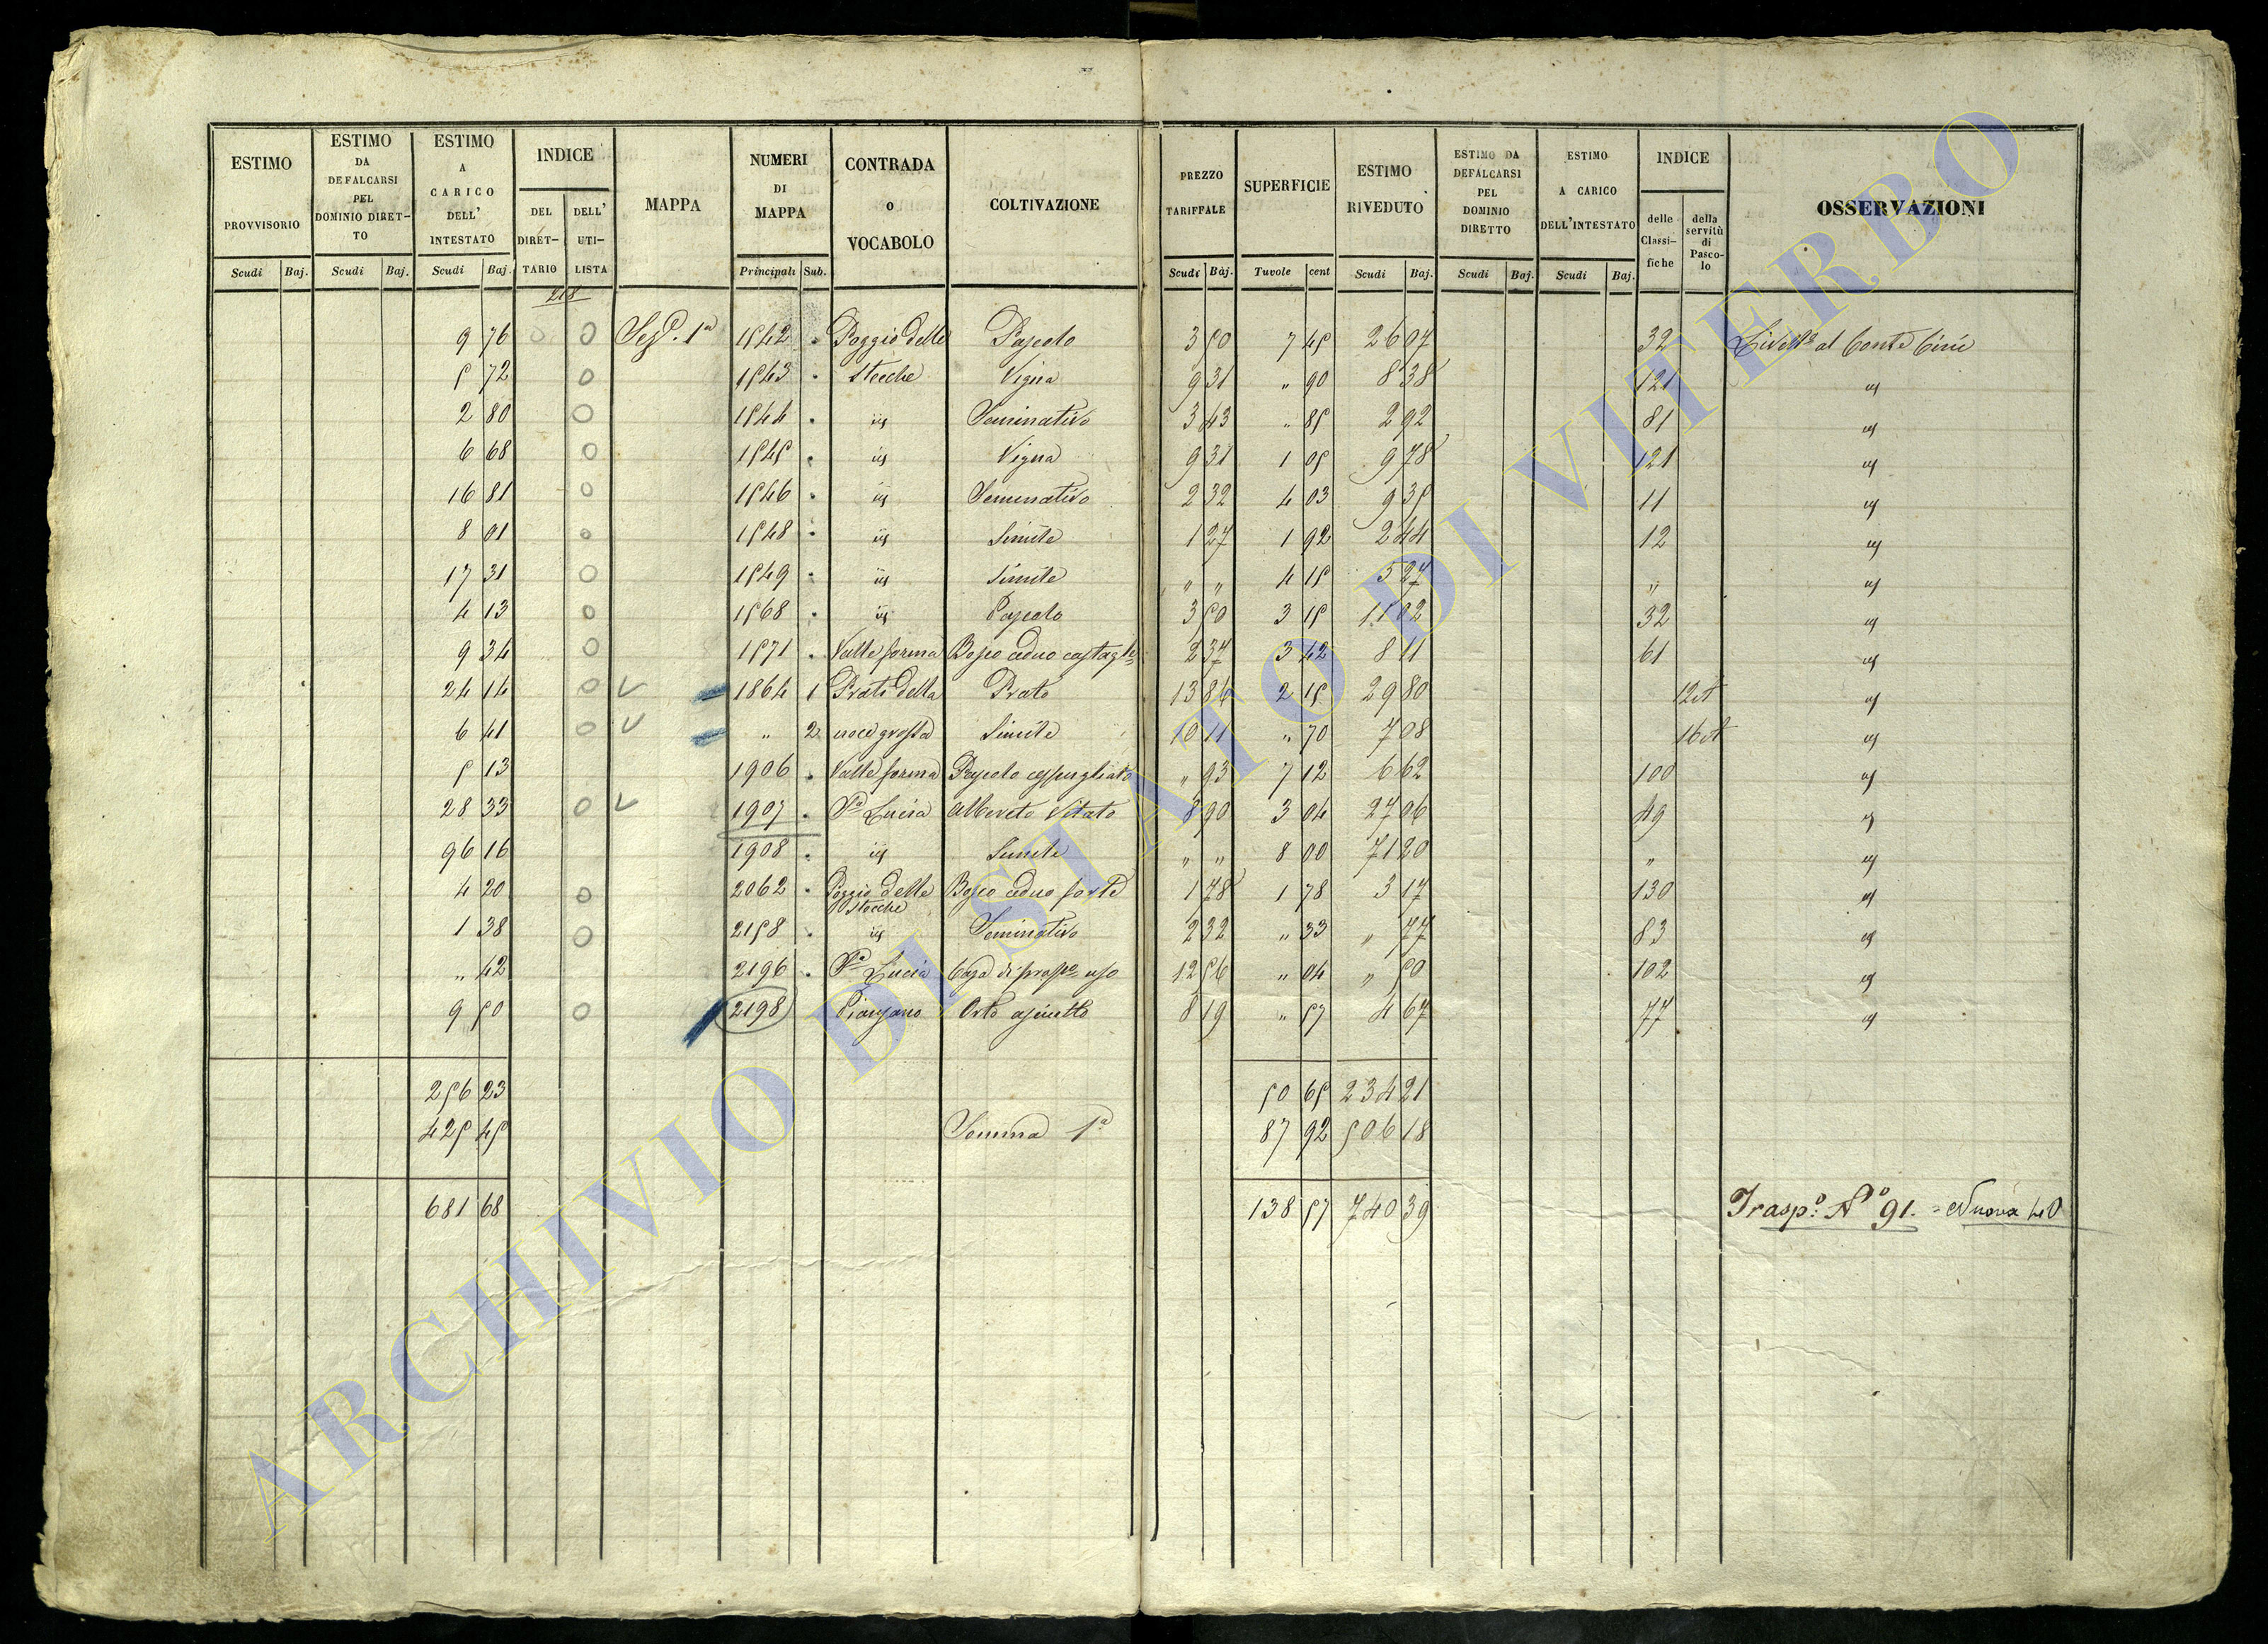 ESTIMO PROVVISORIO Scudi Baj.
ESTIMO DA DEFALCARSI PEL DOMINIO DIRET-TO Scudi Baj.
ESTIMO A CARICO DELL' INTESTATO Scudi Baj.
INDICE DEL DIRET-TARIO DELL' UTI-LISTA
MAPPA
NUMERI DI MAPPA Principali Sub.
CONTRADA o VOCABOLO
COLTIVAZIONE
PREZZO TARIFFALE Scudi Baj.
SUPERFICIE Tavole cent
ESTIMO RIVEDUTO Scudi Baj.
ESTIMO DA DEFALCARSI PEL DOMINIO DIRETTO Scudi Baj.
ESTIMO A CARICO DELL'INTESTATO Scudi Baj.
INDICE delle Classi-fiche della servitù di Pasco-lo
OSSERVAZIONI
218
9 76 O O Sez. 1a 1542 . Poggio delle Pascolo 3 50 7 45 26 07 32 Livello al Conte Cini
5 72 O 1543 . Stecche Vigna 9 31 " 90 8 38 121 "
2 80 O 1544 . id Seminativo 3 43 " 85 2 92 81 "
6 68 O 1545 . id Vigna 9 31 1 05 9 78 121 "
16 81 O 1546 . id Seminativo 2 32 4 03 9 35 11 "
8 01 O 1548 . id Simile 1 27 1 92 2 44 12 "
17 31 O 1549 . id Simile " " 4 15 5 27 " "
4 13 O 1568 . id Pascolo 3 50 3 15 11 02 32 "
9 34 O 1571 . Valle forma Bosco ceduo castagn 2 37 3 42 8 11 61 "
24 14 O V 1864 1 Prati della Prato 13 86 2 15 29 80 12 et "
6 41 O V " 2 noce grossa Simile 10 11 " 70 7 08 16 et "
5 13 1906 . Valle forma Pascolo cespugliato " 93 7 12 6 62 100 "
28 33 O V 1907 . Sa Lucia Alberato Vitato 8 90 3 04 27 06 49 "
96 16 1908 . id Simile " " 8 00 71 20 " "
4 20 O 2062 . Poggio delle Stecche Bosco ceduo forte 1 78 1 78 3 17 130 "
1 38 O 2158 . id Seminativo 2 32 " 33 " 77 83 "
" 42 2196 . Sa Lucia Casa di propo uso 12 56 " 04 " 50 102 "
9 50 O 2198 Piansano Orto asciutto 8 19 " 57 4 67 77 "
256 23 50 65 234 21
425 45 Somma 1a 87 92 506 18
681 68 138 57 740 39 Trasp.o No 91. = Nuova 40
ARCHIVIO DI STATO DI VITERBO